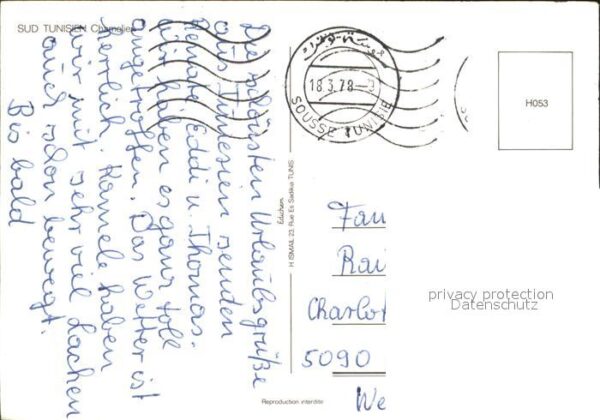 SUD TUNISIEN Chamelier
Die schönsten Urlaubsgrüße
aus Tunesien senden
Renate, Eddi u. Thomas.
Wir haben es ganz toll
angetroffen. Das Wetter ist
herrlich. Kamele haben
wir mit sehr viel Lachen
auch schon bewegt.
Bis bald
H. ISMAIL 23, Rue Es Sadikia TUNIS
Reproduction interdite
18.3.78
SOUSSE TUNISIE
H053
Fam
Rai
Charlot
5090
We
privacy protection
Datenschutz